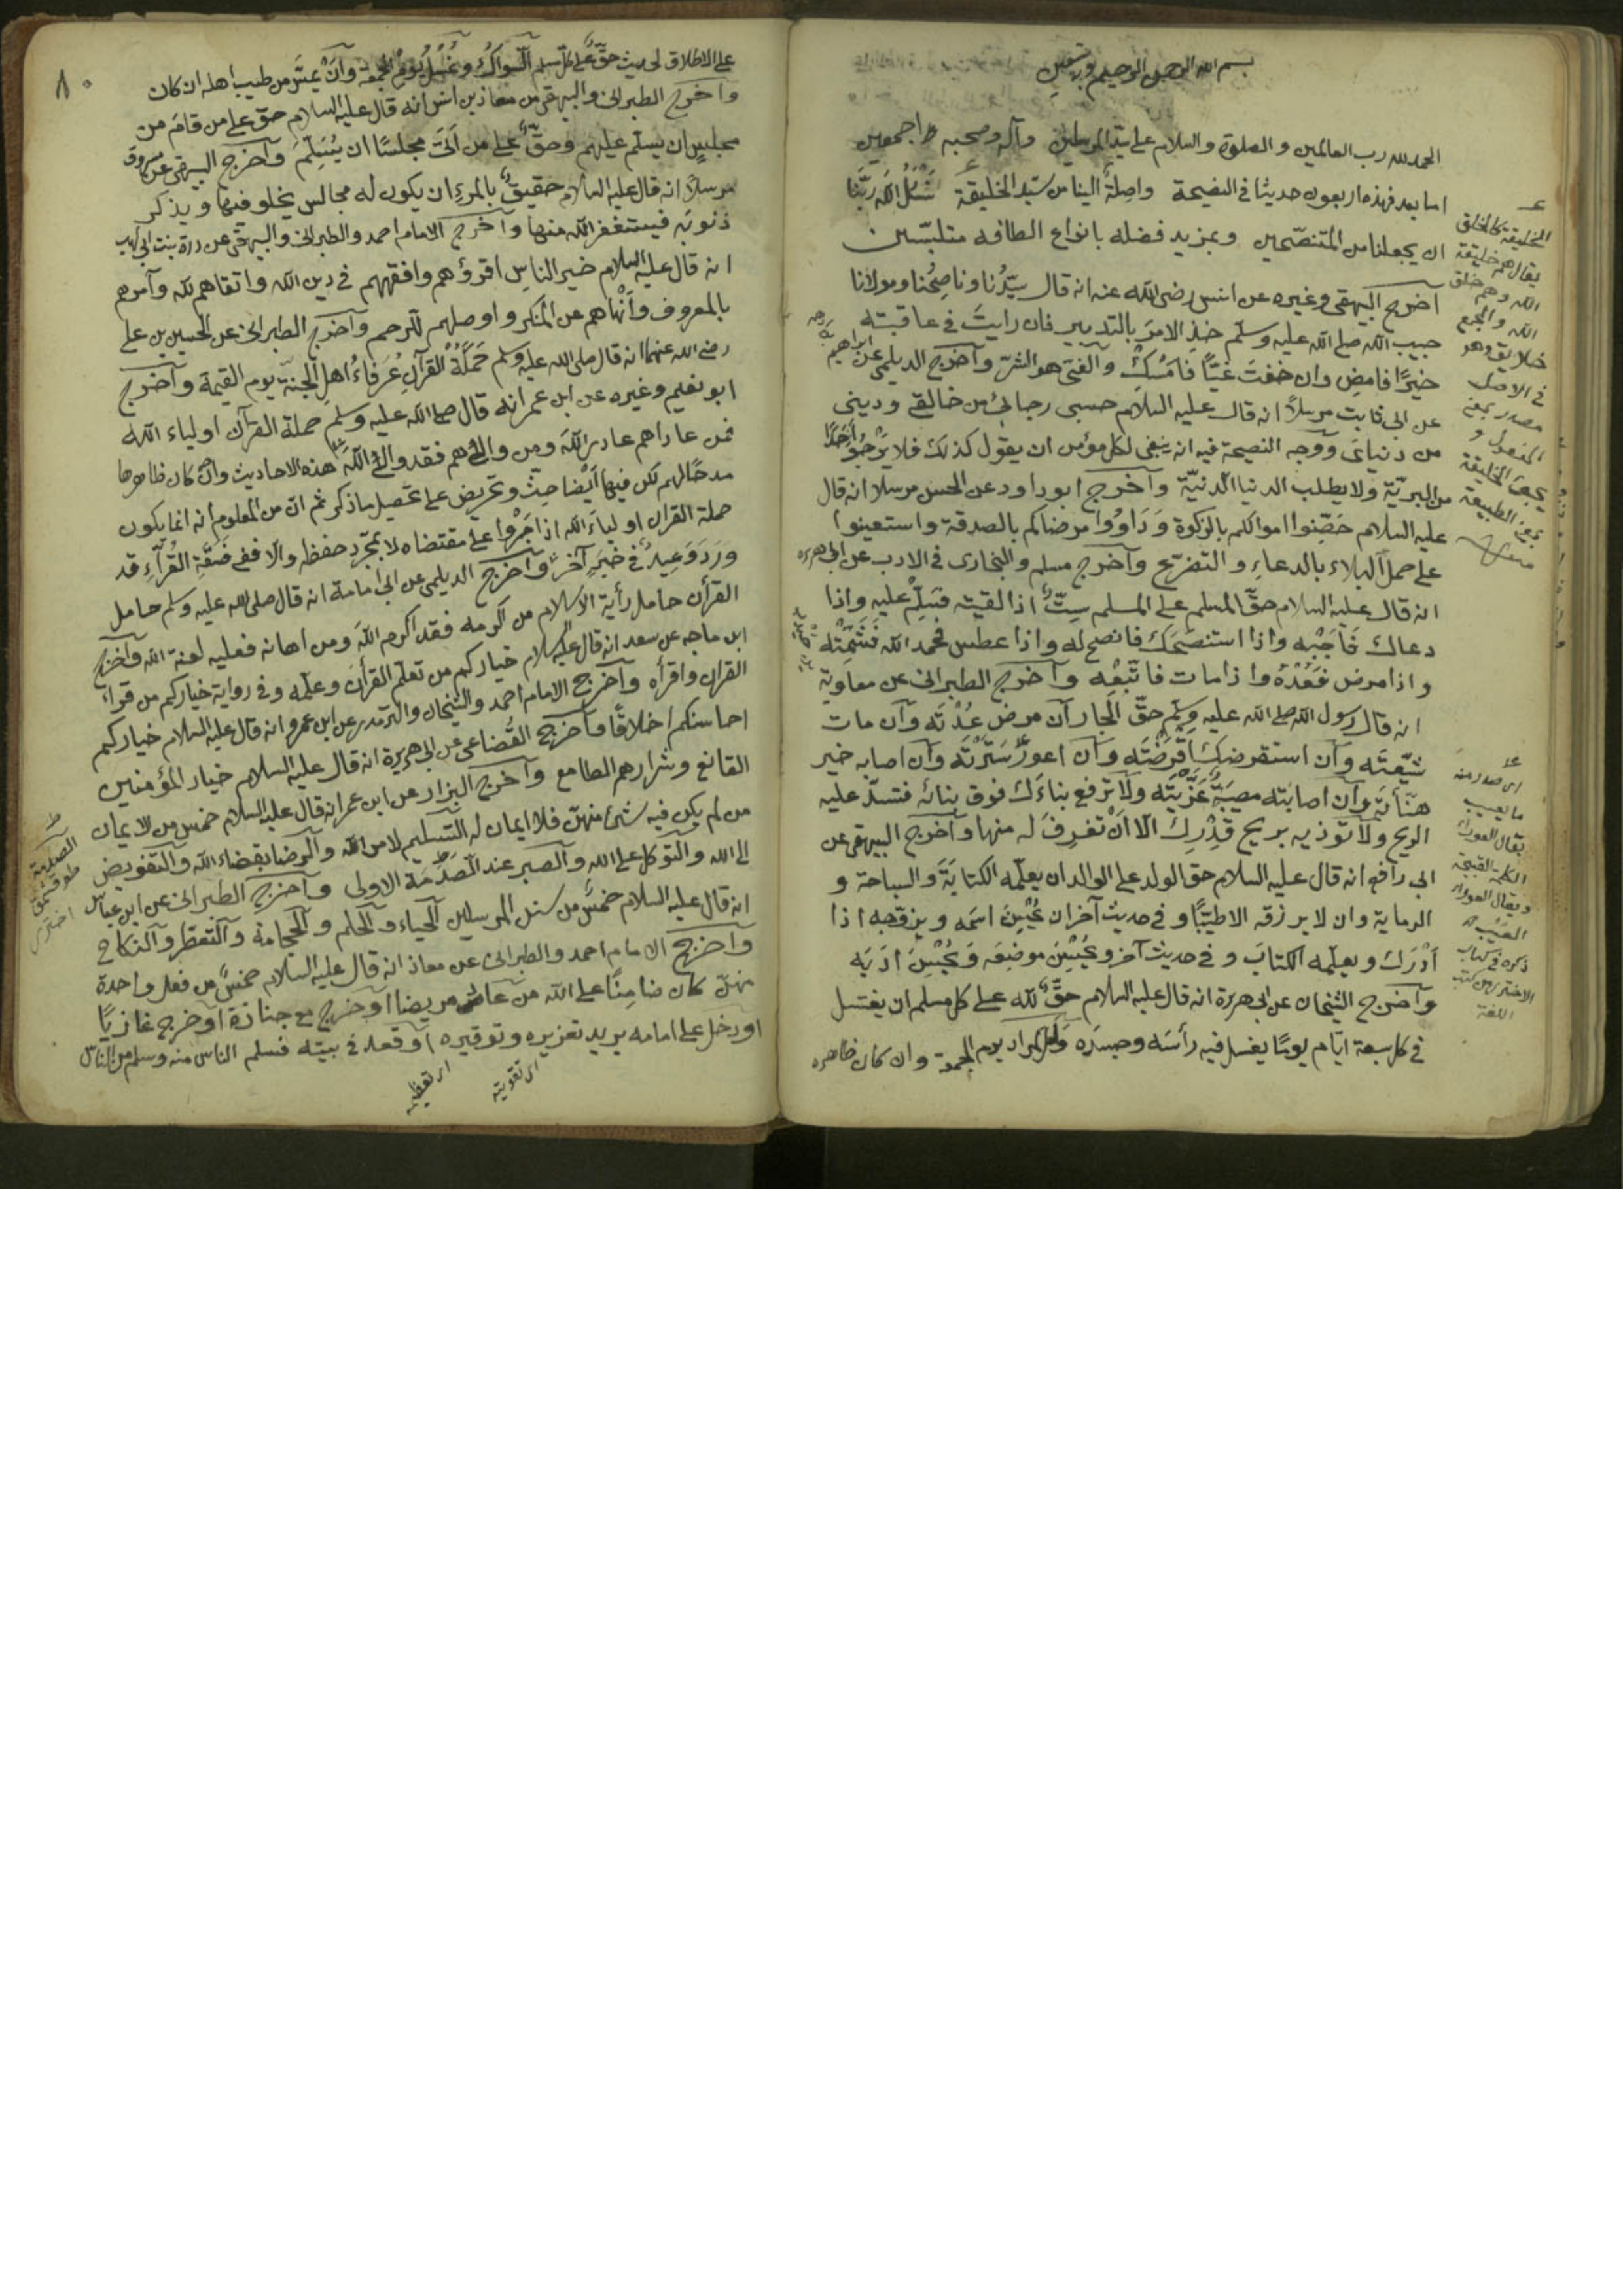 بسم الله الرحمن الرحيم وبه نستعين
الحمد لله رب العالمين والصلوة والسلام على سيد المرسلين وآله وصحبه اجمعين
اما بعد فهذه اربعون حديثا في النصيحة واصلةٌ الينا من سيد الخليقة نَسْئَلُ اللّه ربَّنا
ان يجعلنا من المتنصّحين وبمزيد فضله بانواع الطافه متلبّسين
اخرج البيهقي وغيره عن انس رضى اللّه عنه انه قال سيّدُنا وناصِحُنا ومولانا
حبيب اللّه صلى اللّه عليه وسلّم خذِ الامرَ بالتدبير فان رايتَ في عاقبته
خيرًا فامضِ وان خفتَ غيّاً فامْسِكْ والغيّ هو الشرّ وآخرج الديلمي عن ابراهيم
عن ابى ثابت مرسلاً انه قال عليه السلام حسبى رجائى من خالقى ودينى
من دنياىَ ووجه النصيحة فيه انه ينبغى لكل مؤمن ان يقول كذلك فلا يَرْجُوَ احَدًا
من البريّة ولا يطلب الدنيا الدنيّة وآخرج ابو داود عن الحسن مرسلا انه قال
عليه السلام حَصِّنوا اموالكم بالزكوة وَدَاوُوا مرضاكم بالصدقة واستعينوا
على حمل البلاء بالدعاءِ والتضرّع وآخرج مسلم والبخارى في الادب عن ابى هريره
انه قال عليه السلام حقّ المسلم على المسلم سِتٌّ اذا لقيته فسَلِّمْ عليه واذا
دعاك فَاَجِبْهِ واذا استنصَحَكَ فانصح له واذا عطس فحمد اللّه فَشَمِّتْه
واذا مرض فَعُدْهُ واذا مات فاتّبعْه وآخرج الطبرانى عن معاوية
انه قال رسول اللّه صلى اللّه عليه وسلّم حقّ الجار ان مرض عُدْتَه وآن مات
شيّعتَه وآن استقرضك اَقْرَضْتَه وآن اعوَرَ سَتَرْتَه وآن اصابه خير
هنّأتَه وآن اصابته مصيبةٌ عَزَّيْتَه ولآ ترفع بناءَك فوق بنائه فتسدّ عليه
الريح ولآ تؤذيه بريح قِدْرِكَ الّا اَنْ تغرِفَ له منها وآخرج البيهقى عن
ابى رافع انه قال عليه السلام حق الولد على الوالد ان يعلّمه الكتابَةَ والسباحة و
الرماية وان لا يرزقه الا طيّبًا وفي حديث آخر ان يُحْسِنَ اسمَه ويزوّجه اذا
اَدْرَك ويعلّمه الكتابَ وفي حديث آخر ويُحْسِنَ موضِعَه وَيُحْسِنَ اَدَبَه
وآخرج الشيخان عن ابى هريرة انه قال عليه السلام حقٌّ للّه على كل مسلم ان يغتسل
في كل سبعة ايّام يومًا يغسل فيه رأسَه وجسَدَه ولعلّ المراد يوم الجمعة وان كان ظاهره
الخليقة كالخلق
يقال هم خليقة
اللّه وهم خلق
اللّه والجمع
خلائق وهو
في الاصل
مصدر بمعنى
المفعول و
يجيئ الخليقة
بمعنى الطبيعة
اى صدر منه
ما يعيب
يقال العوراء
الكلمة القبيحة
ويقال العوار
العَيْب
ذكره في كتاب
الاخترى من كتب
اللغة
٨٠
على الاطلاق لحديث حقٌّ على كل مسلم السّواكُ وغُسْلُ يَوْمِ الجمعة وآنْ يمسَّ من طيب اهله ان كان
واخرج الطبرانى والبيهقى عن معاذ بن انس انه قال عليه السلام حقّ على من قام من
مجلسٍ ان يسلّم عليهم وحقٌّ على من اَتَى مجلسًا ان يُسَلِّمَ وآخرج البيهقى عن مسروق
مرسلاً انه قال عليه السلام حقيقٌ بالمرءِ ان يكون له مجالس يخلو فيها ويذكر
ذنوبَه فيستغفر اللّه منها وآخرج الامام احمد والطبرانى والبيهقى عن درة بنت ابى لهب
انه قال عليه السلام خير الناسِ اقرؤهم وافقههم في دين اللّه واتقاهم للّه وآمرهم
بالمعروف وَاَنْهاهم عن المنكر واوصلهم للرحم وآخرج الطبرانى عن الحسين بن على
رضى اللّه عنهما انه قال صلى اللّه عليه وسلم حَمَلَةُ القرآنِ عُرَفاءُ اهلِ الجنّة يوم القيمة وآخرج
ابو نعيم وغيره عن ابن عمر انه قال صلى اللّه عليه وسلم حملة القرآن اولياء اللّه
فمن عاداهم عادى اللّهَ ومن والاهم فقد والى اللّهَ هذه الاحاديث وان كان ظاهرها
مدحًا لهم لكن فيها اَيْضا حثّ وتحريض على تحصيل ما ذكر ثم انّ من المعلوم انه انما يكون
حملة القران اولياءَ اللّه اذا جَرَوْا على مقتضاه لا بمجرّد حفظه والّا ففى فَسَقَةِ القُرّآءِ قد
وَرَدَ وَعِيدٌ في خبَرٍ آخرَ وآخرج الديلمى عن ابى امامة انه قال صلى اللّه عليه وسلم حامل
القرأن حامل رأية الاسلام من اكرمه فقد اكرم اللّهَ ومن اهانه فعليه لعنة اللّه وآخرج
ابن ماجه عن سعد انه قال عليه السلام خياركم من تعلّم القرأن وعلّمه وفي رواية خياركم من قرأ
القران واقرأه وآخرج الامام احمد والشيخان والترمذى عن ابن عمرو انه قال عليه السلام خياركم
احاسنكم اخلاقًا وآخرج القُضاعى عن ابى هريرة انه قال عليه السلام خيار المؤمنين
القانع وشرارهم الطامع وآخرج البزار عن ابن عمر انه قال عليه السلام خمس من الايمان
من لم يكن فيه شئ منهنّ فلا ايمان له التسليم لامر اللّه والرضا بقضاء اللّه والتفويض
الى اللّه والتوكل على اللّه والصبر عند الصَدْمَة الاولى وآخرج الطبرانى عن ابن عباس
انه قال عليه السلام خمسٌ من سنن المرسلين الحياء والحلم والحجامة والتعطّر والنكاح
وآخرج الامام احمد والطبرانى عن معاذ انه قال عليه السلام خمسٌ من فعل واحدة
منهنّ كان ضامِنًا على اللّه من عاد مريضا او خرج مع جنازة او خرج غازيًا
او دخل على امامه يريد تعزيره وتوقيره او قعد في بيته فسلم الناس منه وسلم من الناس
اى تقويته
اى تعظيمه